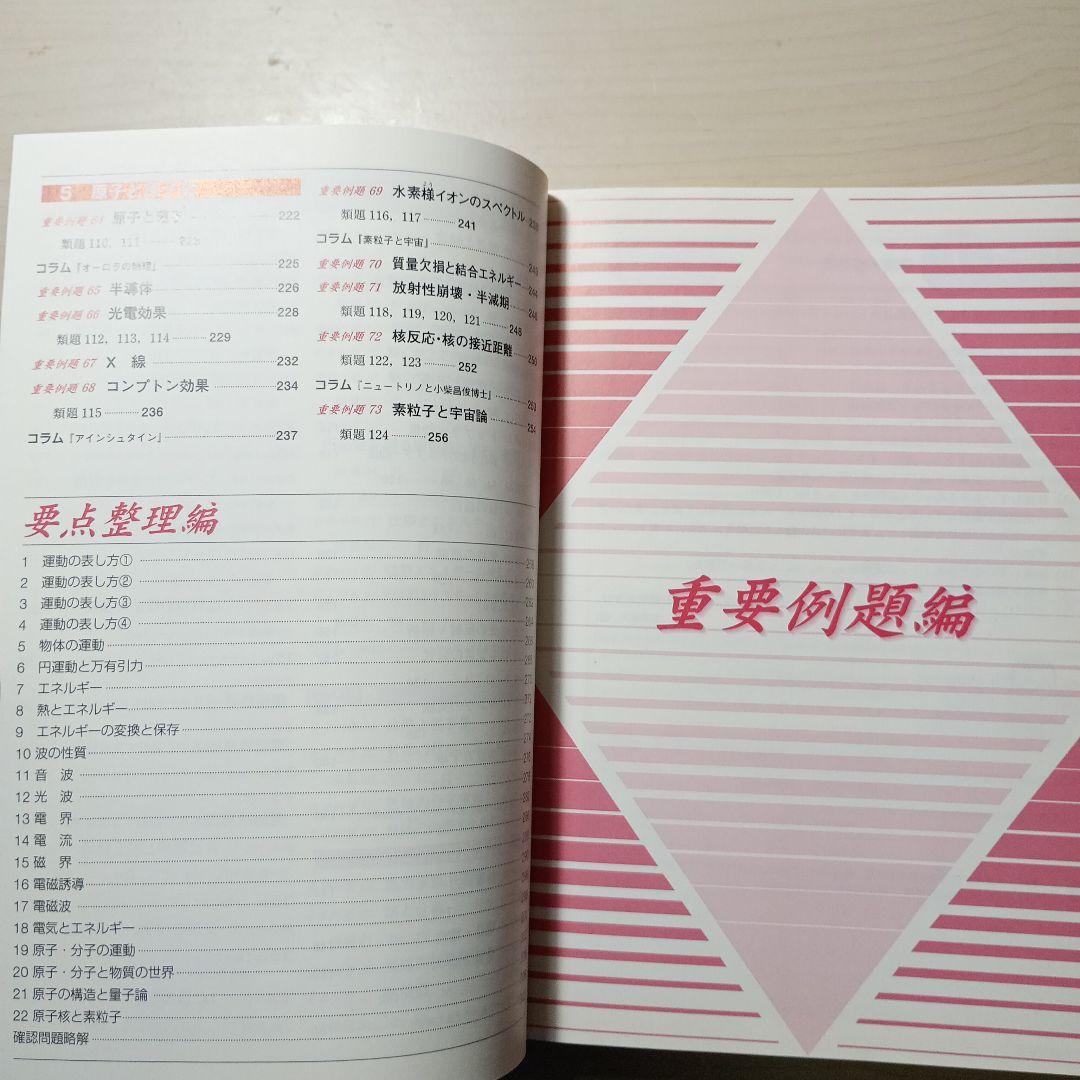 5 原子と
重要例題 64 原子と 222
類題 110, 111
コラム『オーロラの物理』 225
重要例題 65 半導体 226
重要例題 66 光電効果 228
類題 112, 113, 114 229
重要例題 67 X 線 232
重要例題 68 コンプトン効果 234
類題 115 236
コラム『アインシュタイン』 237
重要例題 69 水素様イオンのスペクトル
類題 116, 117 241
コラム『素粒子と宇宙』
重要例題 70 質量欠損と結合エネルギー 244
重要例題 71 放射性崩壊・半減期
類題 118, 119, 120, 121 248
重要例題 72 核反応・核の接近距離 250
類題 122, 123 252
コラム『ニュートリノと小柴昌俊博士』 253
重要例題 73 素粒子と宇宙論 254
類題 124 256
要点整理編
1 運動の表し方①
2 運動の表し方②
3 運動の表し方③
4 運動の表し方④
5 物体の運動
6 円運動と万有引力
7 エネルギー
8 熱とエネルギー
9 エネルギーの変換と保存
10 波の性質
11 音 波
12 光 波
13 電 界
14 電 流
15 磁 界
16 電磁誘導
17 電磁波
18 電気とエネルギー
19 原子・分子の運動
20 原子・分子と物質の世界
21 原子の構造と量子論
22 原子核と素粒子
確認問題略解
重要例題編